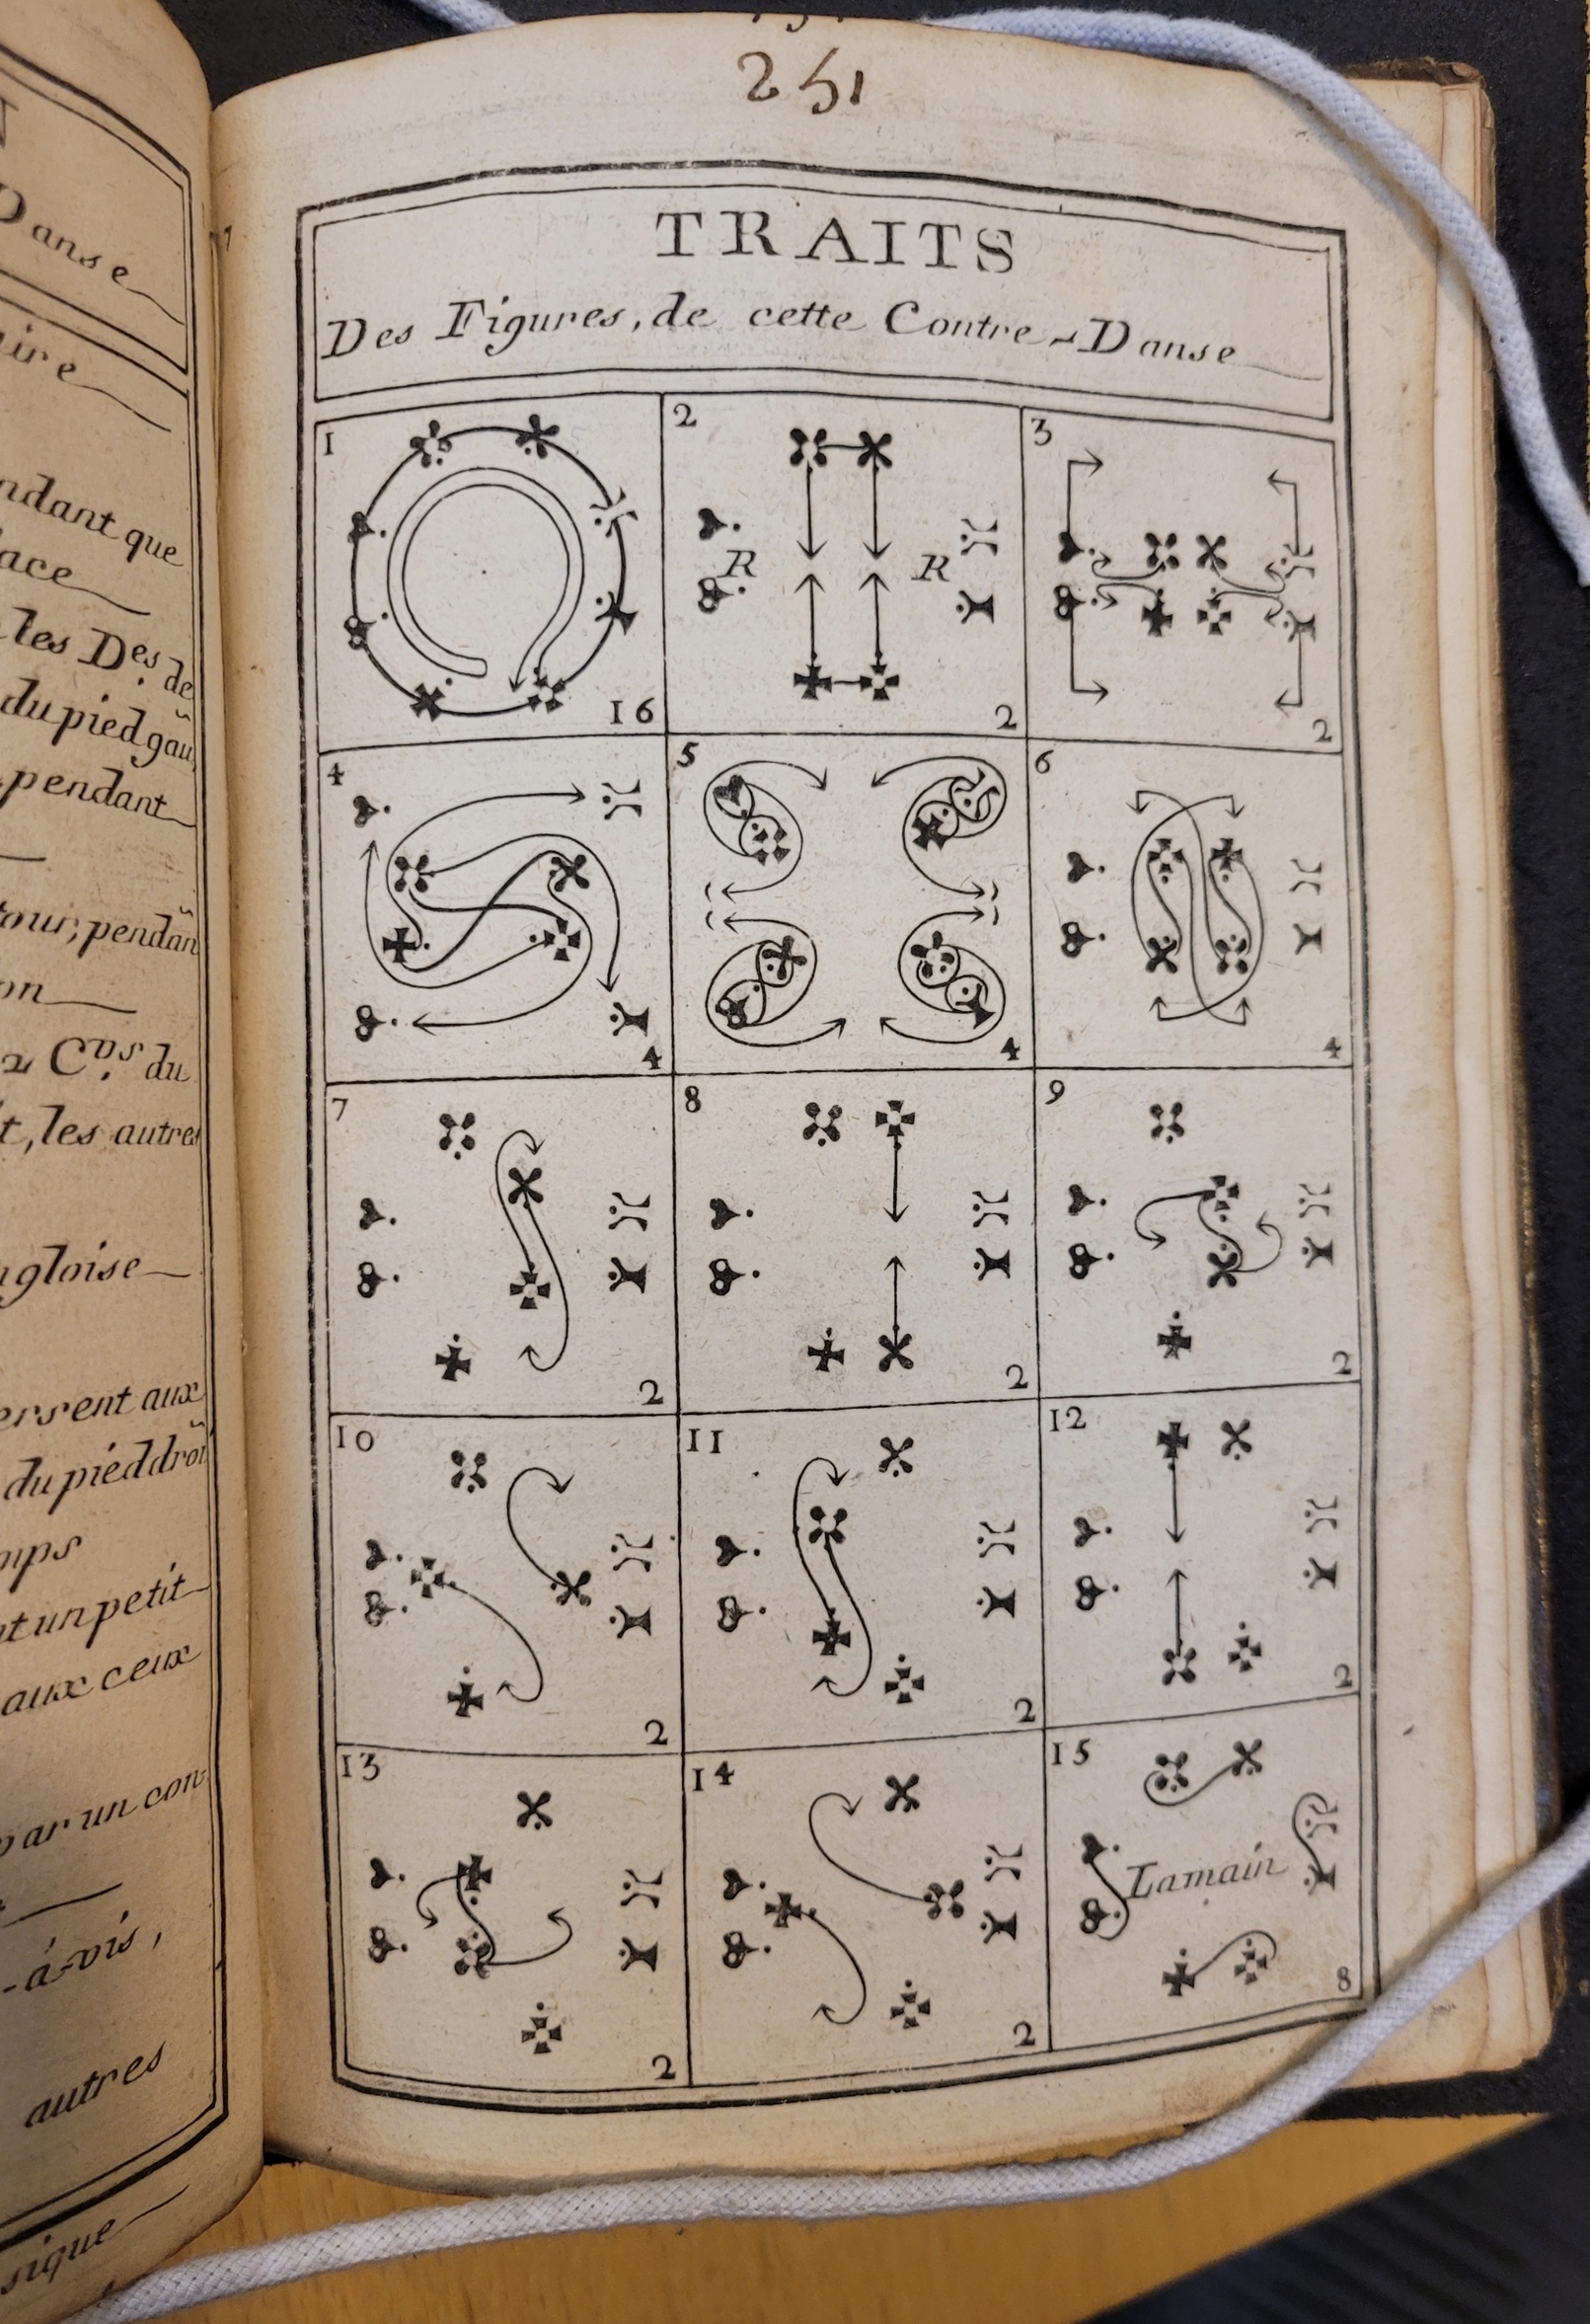 251
TRAITS
Des Figures, de cette Contre-Danse
1
16
2
R R
2
3
2
4
4
5
4
6
4
7
2
8
2
9
2
10
2
11
2
12
2
13
2
14
2
15
Lamain
8
Danse
ndant que
ace
les D.es de
du pied gaũ
pendant
tour, pendãn
on
2 C.vrs du
t, les autres
ngloise
ersent aux
du pied drõi
mps
nt un petit
aux ceux
par un con-
-á-vis,
autres
sique